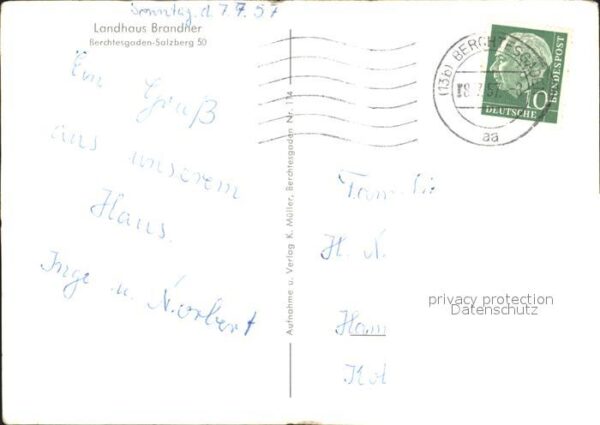 Sonntag d. 7.7.57
Landhaus Brandner
Berchtesgaden-Salzberg 50
Ein Gruß
aus unserem
Haus.
Inge u. Norbert
Aufnahme u. Verlag K. Müller, Berchtesgaden Nr. 114
(13b) BERCHTESGADEN
aa
10
DEUTSCHE
BUNDESPOST
Familie
H. N.
Ham
privacy protection
Datenschutz